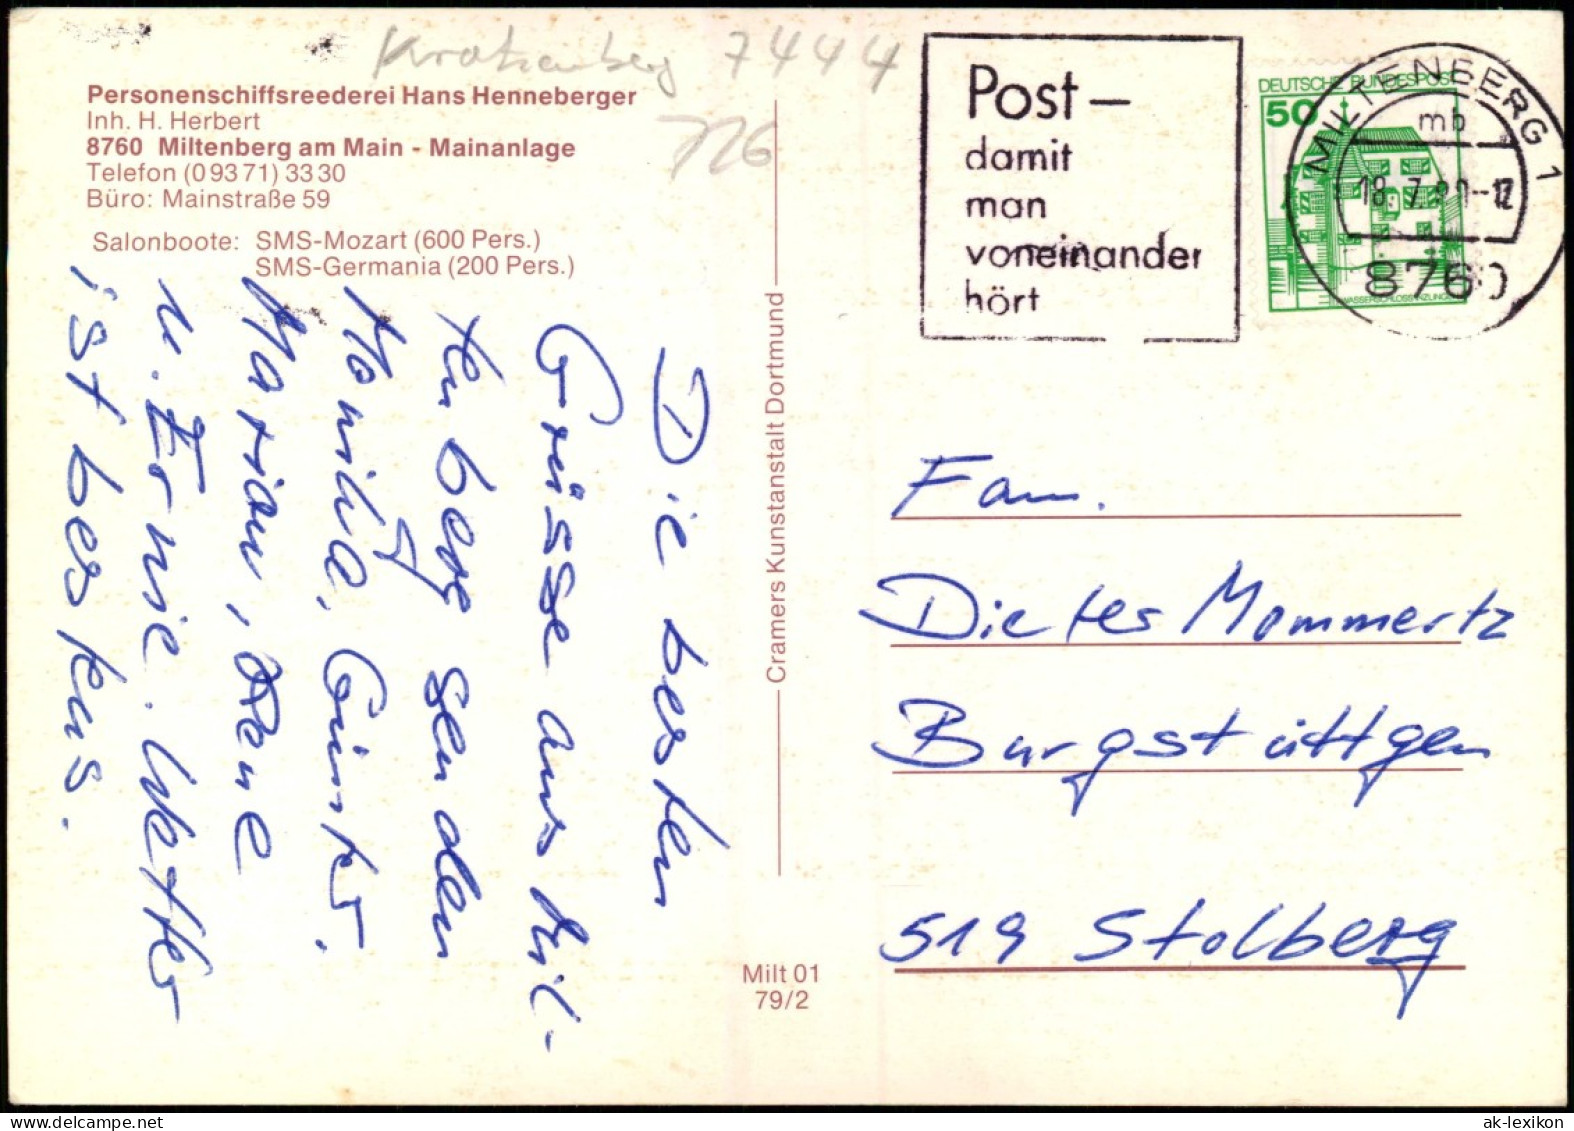 Kratzenberg 7444
726
Personenschiffsreederei Hans Henneberger
Inh. H. Herbert
8760 Miltenberg am Main - Mainanlage
Telefon (0 93 71) 33 30
Büro: Mainstraße 59
Salonboote: SMS-Mozart (600 Pers.)
SMS-Germania (200 Pers.)
Die besten
Grüsse aus Mil-
tenberg senden
Monika, Günter,
Marion,
u. Ernie. Wetter
ist bestens.
Cramers Kunstanstalt Dortmund
Milt 01
79/2
Post –
damit
man
voneinander
hört
DEUTSCHE BUNDESPOST
50
WASSERSCHLOSS INZLINGEN
MILTENBERG 1
mb
8760
Fam.
Dieter Mommertz
Burgstüttgen
519 Stolberg
ak-lexikon